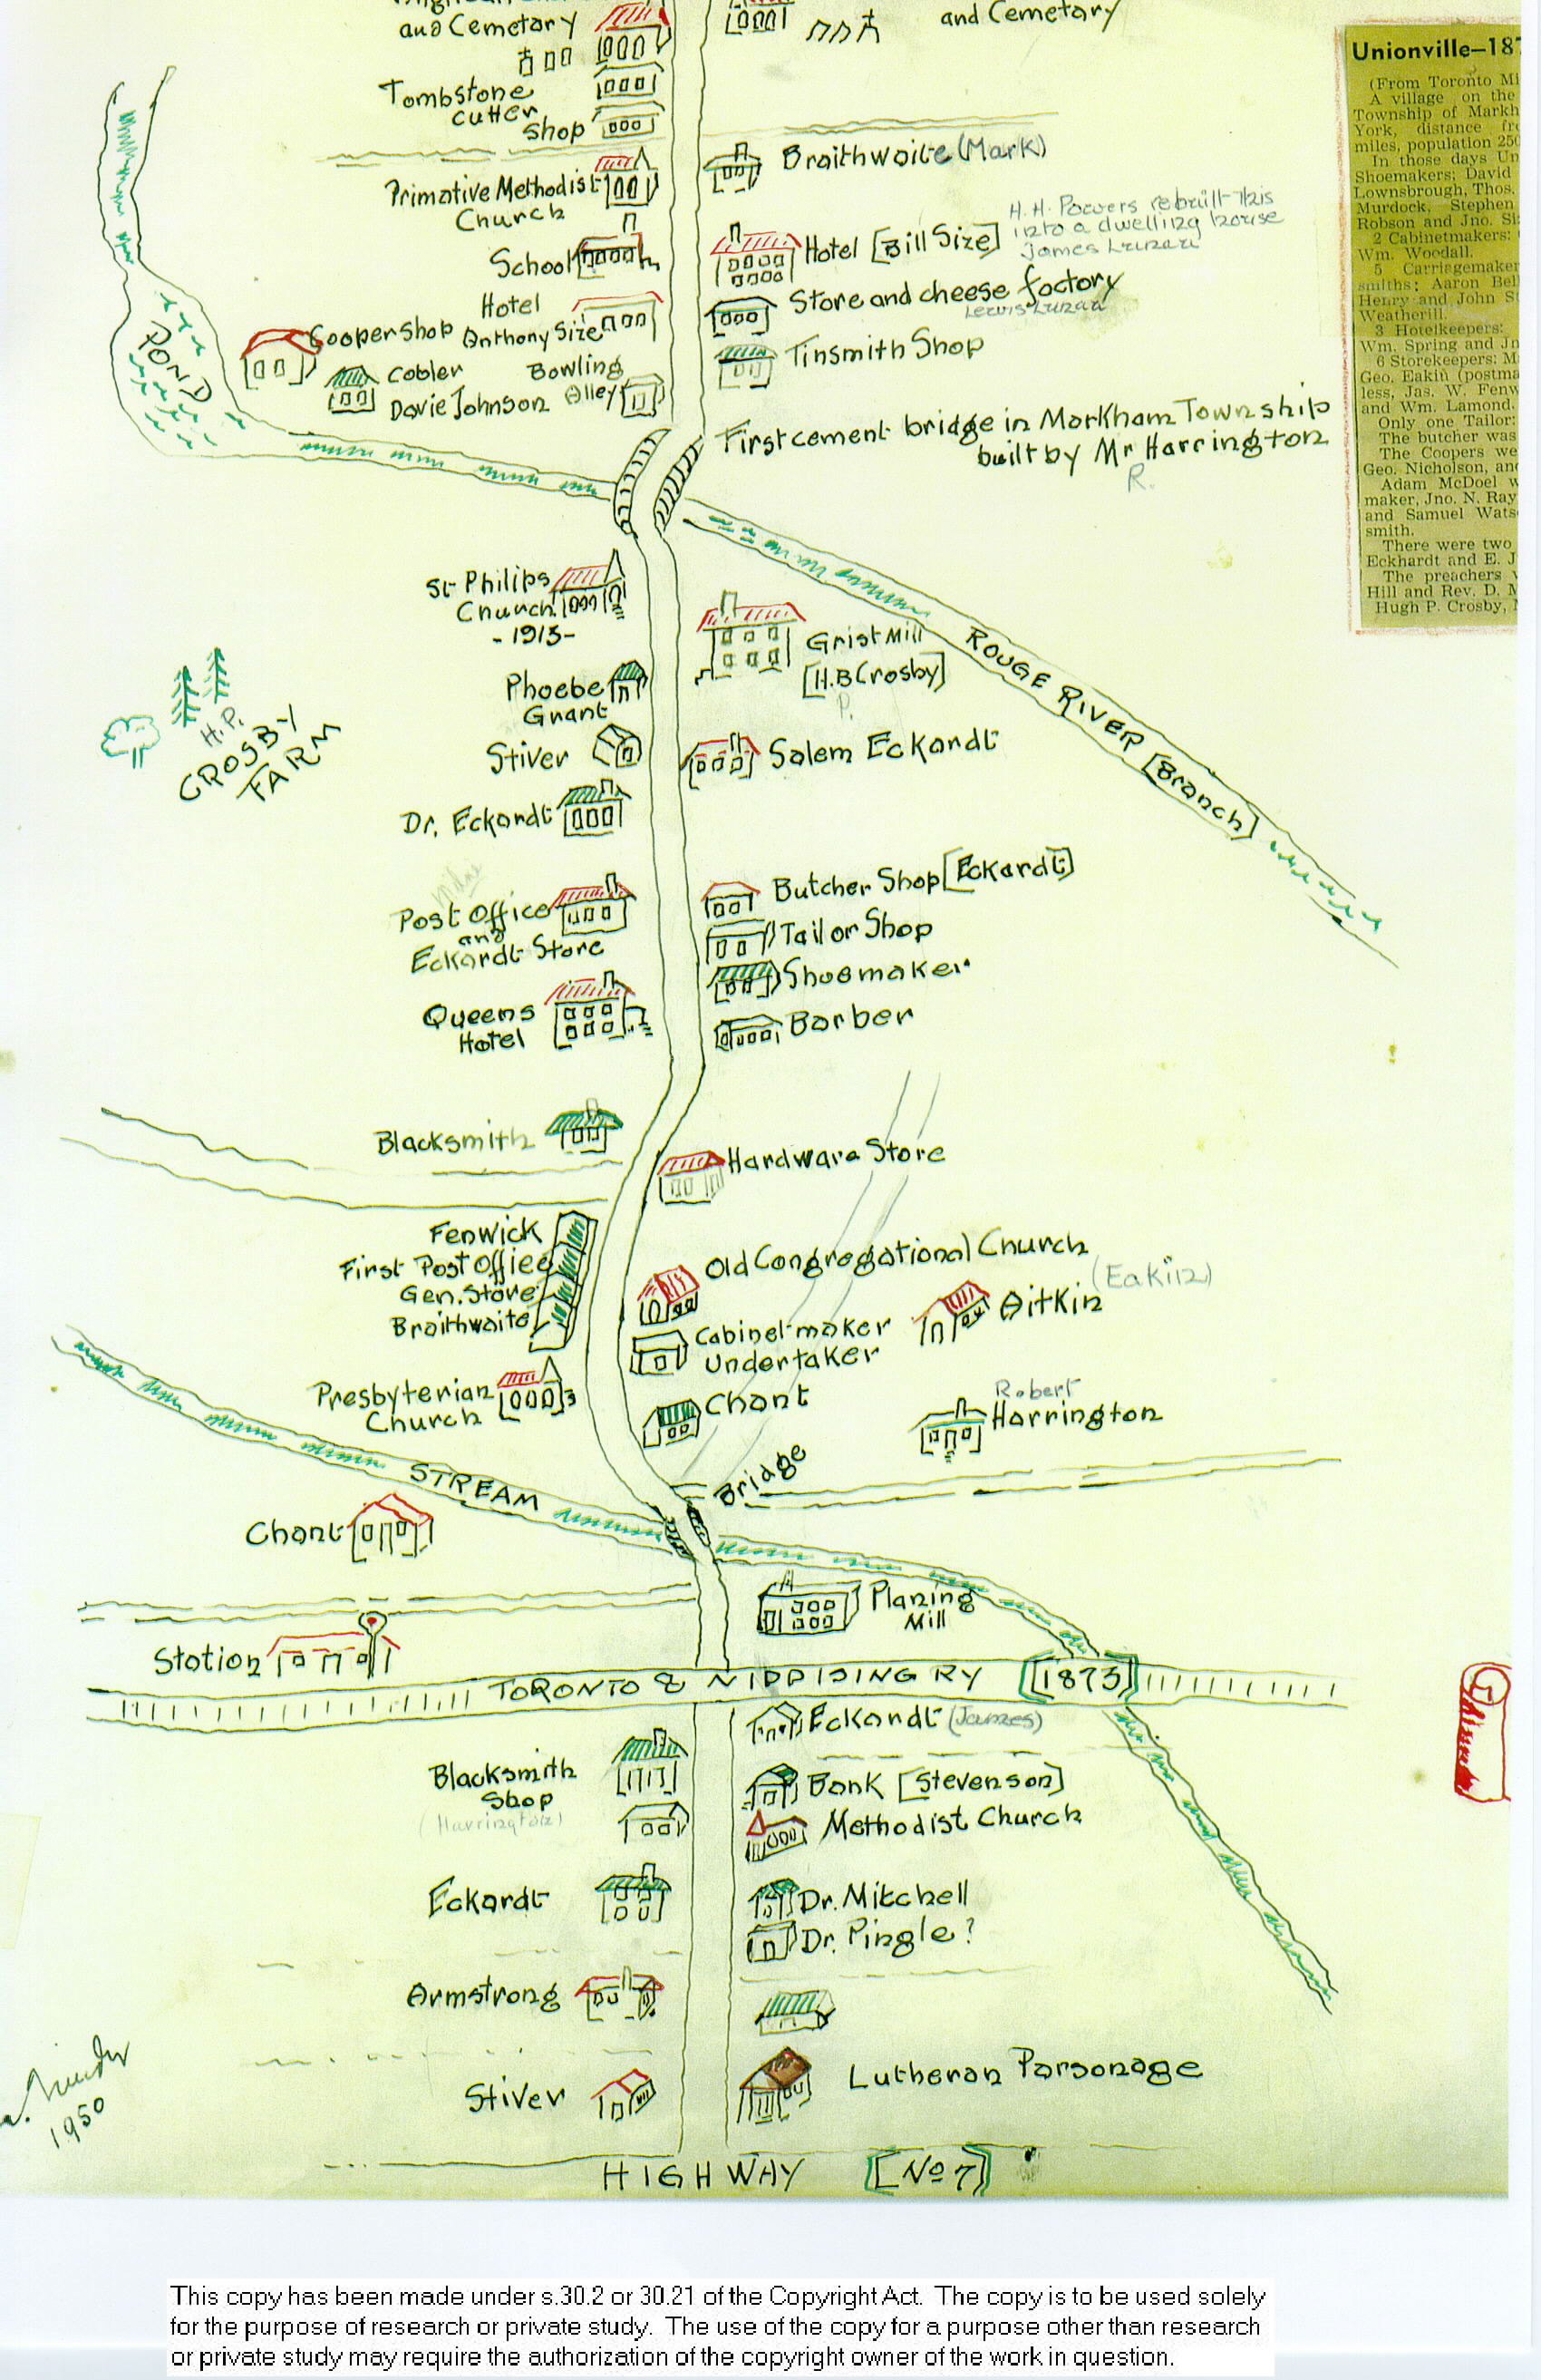 and Cemetary
and Cemetary
Tombstone
cutter
Shop
Braithwaite (Mark)
Primative Methodist
Church
H.H. Powers rebuilt this
into a dwelling house
James
School
Hotel [Bill Size]
Store and cheese factory
Lewis
Hotel
Anthony Size
Cooper Shop
Tinsmith Shop
Cobler
Davie Johnson
Bowling
Alley
POND
First cement bridge in Markham Township
built by Mr Harrington
R.
Unionville—187
(From Toronto Mi
A village on the
Township of Markh
York, distance fr
miles, population 250
In those days Un
Shoemakers; David
Lownsbrough, Thos.
Murdock, Stephen
Robson and Jno. Si
2 Cabinetmakers:
Wm. Woodall.
5 Carriagemaker
smiths; Aaron Bel
Henry and John S
Weatherill.
3 Hotelkeepers:
Wm. Spring and Jn
6 Storekeepers: M
Geo. Eakin (postma
less, Jas. W. Fenw
and Wm. Lamond.
Only one Tailor:
The butcher was
The Coopers we
Geo. Nicholson, and
Adam McDoel w
maker, Jno. N. Ray
and Samuel Wats
smith.
There were two
Eckhardt and E. J
The preachers
Hill and Rev. D. M
Hugh P. Crosby,
St Philips
Church
- 1913 -
Grist Mill
[H.B Crosby]
P.
ROUGE RIVER [Branch]
Phoebe
Grant
H.P.
CROSBY
FARM
Stiver
Salem Eckardt
Dr. Eckardt
Butcher Shop [Eckardt]
Post Office
and
Eckardt Store
Tailor Shop
Shoemaker
Queens
Hotel
Barber
Blacksmith
Hardware Store
Fenwick
First Post Office
Gen. Store
Braithwaite
Old Congregational Church
Aitkin
(Eakin)
Cabinet maker
Undertaker
Presbyterian
Church
Chant
Robert
Harrington
STREAM
Bridge
Chant
Planing
Mill
Station
TORONTO & NIPPISING RY [1873]
Eckardt (James)
Blacksmith
Shop
(Harrington)
Bank [Stevenson]
Methodist Church
Eckardt
Dr. Mitchell
Dr. Pingle?
Armstrong
Stiver
Lutheran Parsonage
1950
HIGHWAY [No 7]
This copy has been made under s.30.2 or 30.21 of the Copyright Act. The copy is to be used solely
for the purpose of research or private study. The use of the copy for a purpose other than research
or private study may require the authorization of the copyright owner of the work in question.